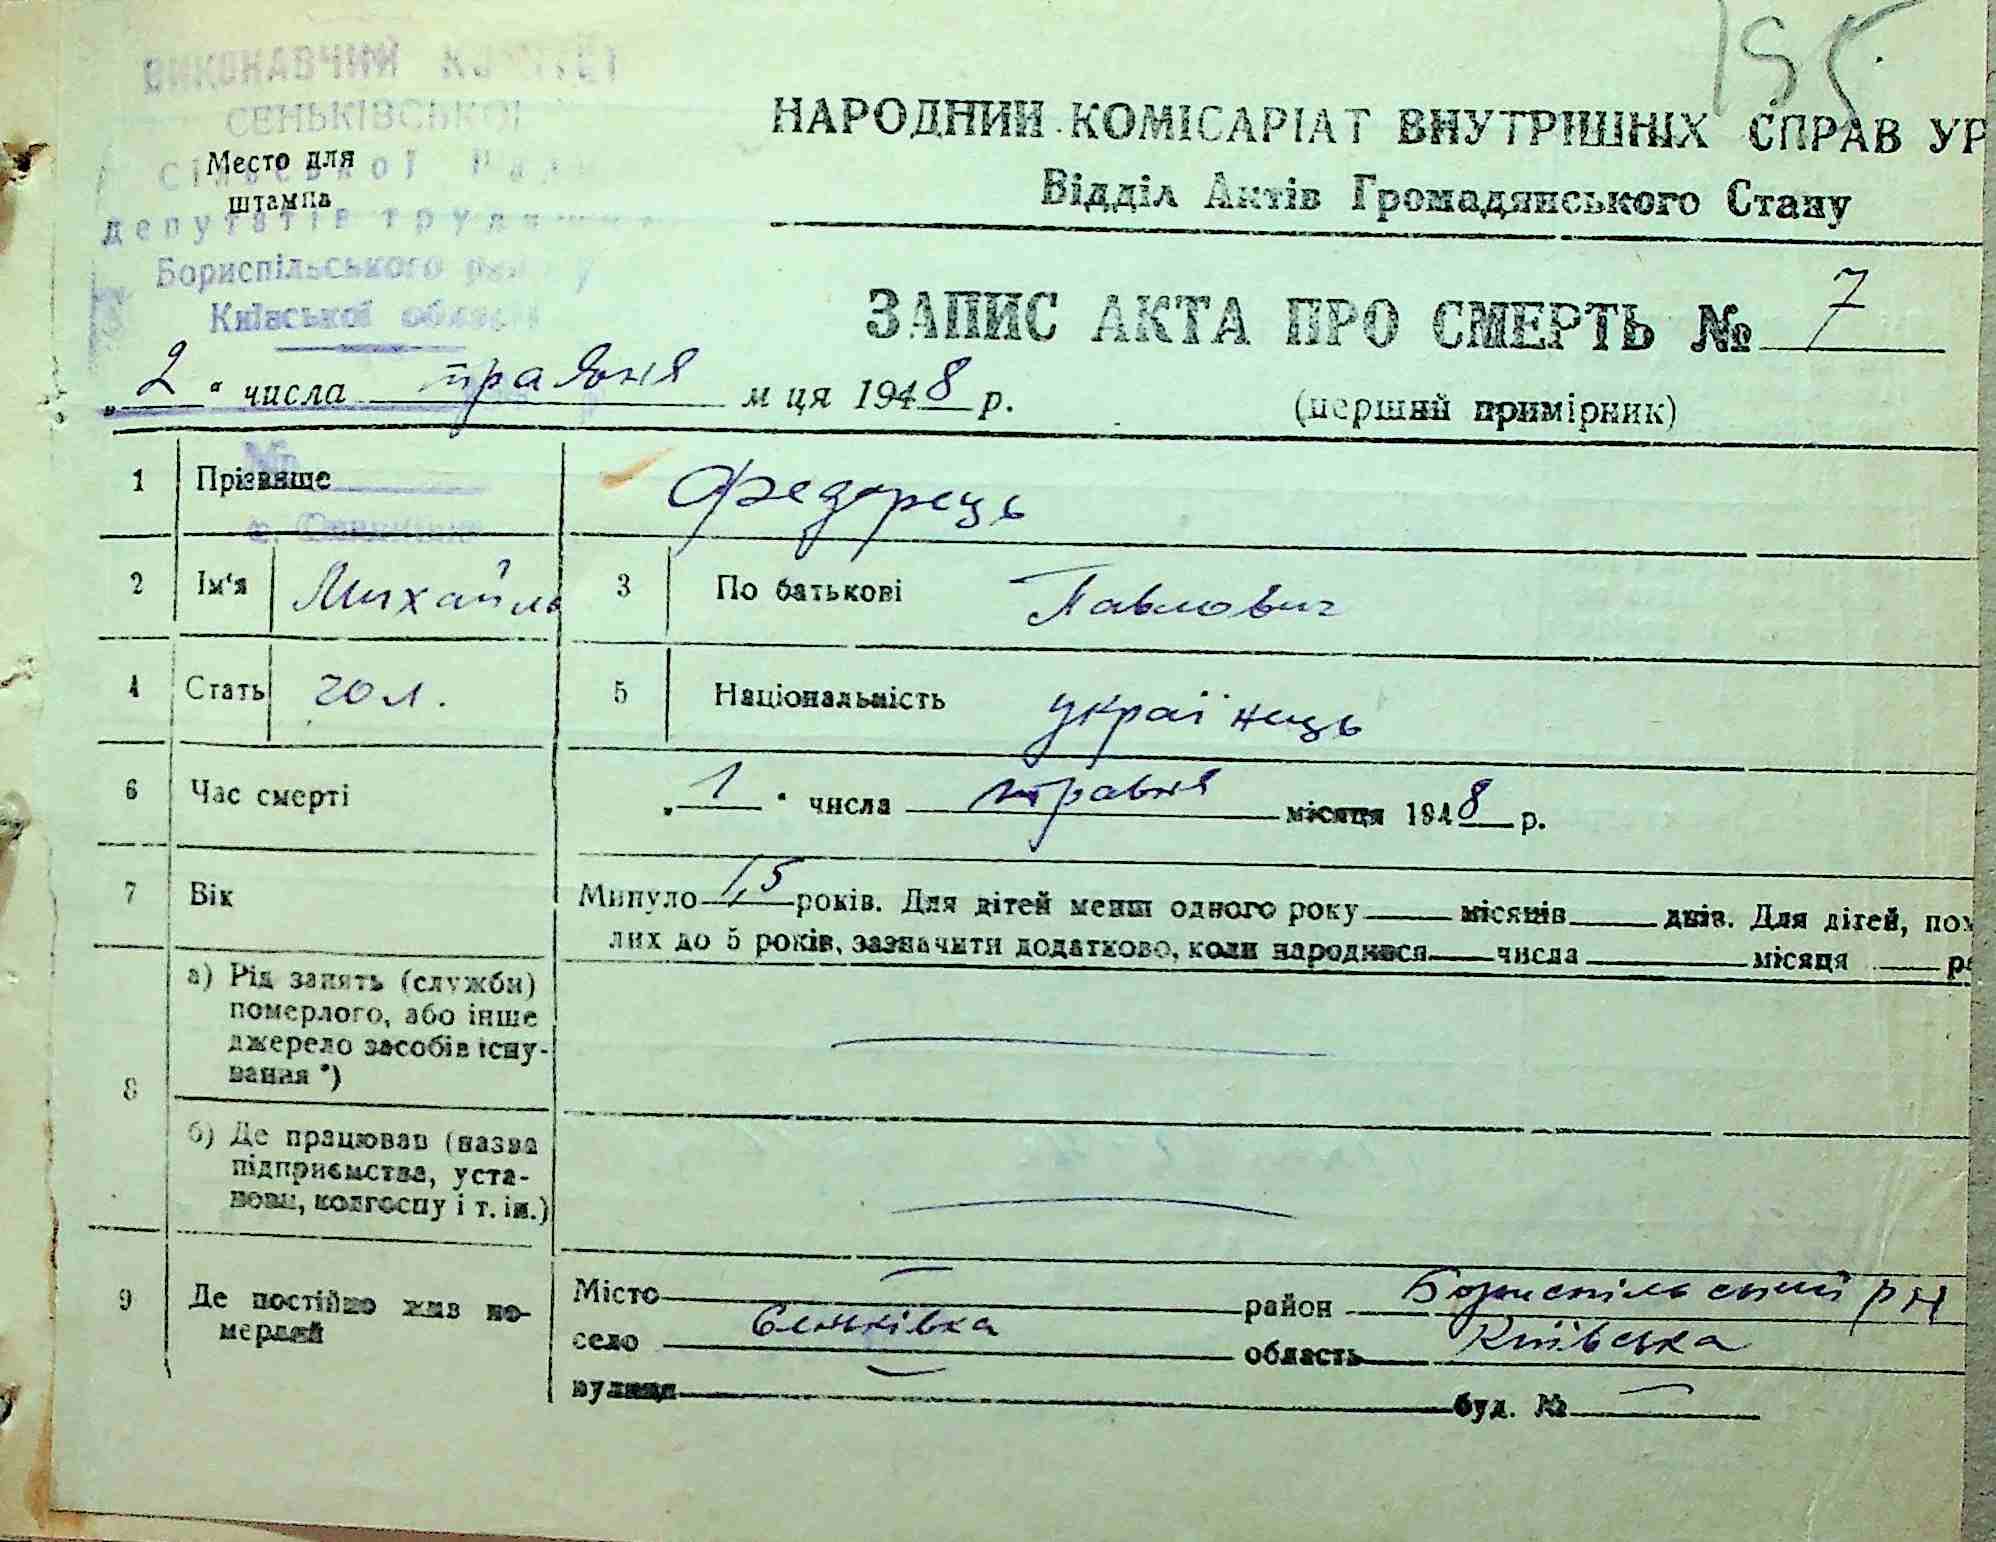 195
ВИКОНАВЧИЙ КОМІТЕТ
СЕНЬКІВСЬКОЇ
Сільської Ради
депутатів трудящих
Бориспільського району
Київської області
№
Место для
штампа
НАРОДНИЙ КОМІСАРІАТ ВНУТРІШНІХ СПРАВ УР
Відділ Актів Громадянського Стану
ЗАПИС АКТА ПРО СМЕРТЬ № 7
„2“ числа травня м ця 1948 р.
(перший примірник)
1 Прізвище Федорець
2 Ім‘я Михайль 3 По батькові Павлович
4 Стать чол. 5 Національність українець
6 Час смерті „1“ числа травня місяця 1948 р.
7 Вік Минуло 1,5 років. Для дітей менш одного року місяців днів. Для дітей, пом
лих до 5 років, зазначити додатково, коли народився числа місяця р
8 а) Рід занять (служби)
померлого, або інше
джерело засобів існу-
вання *)
б) Де працював (назва
підприємства, уста-
нови, колгоспу і т. ін.)
9 Де постійно жив по-
мерлий
Місто район Бориспільський рн
село Сеньківка область Київська
вулиця буд. №